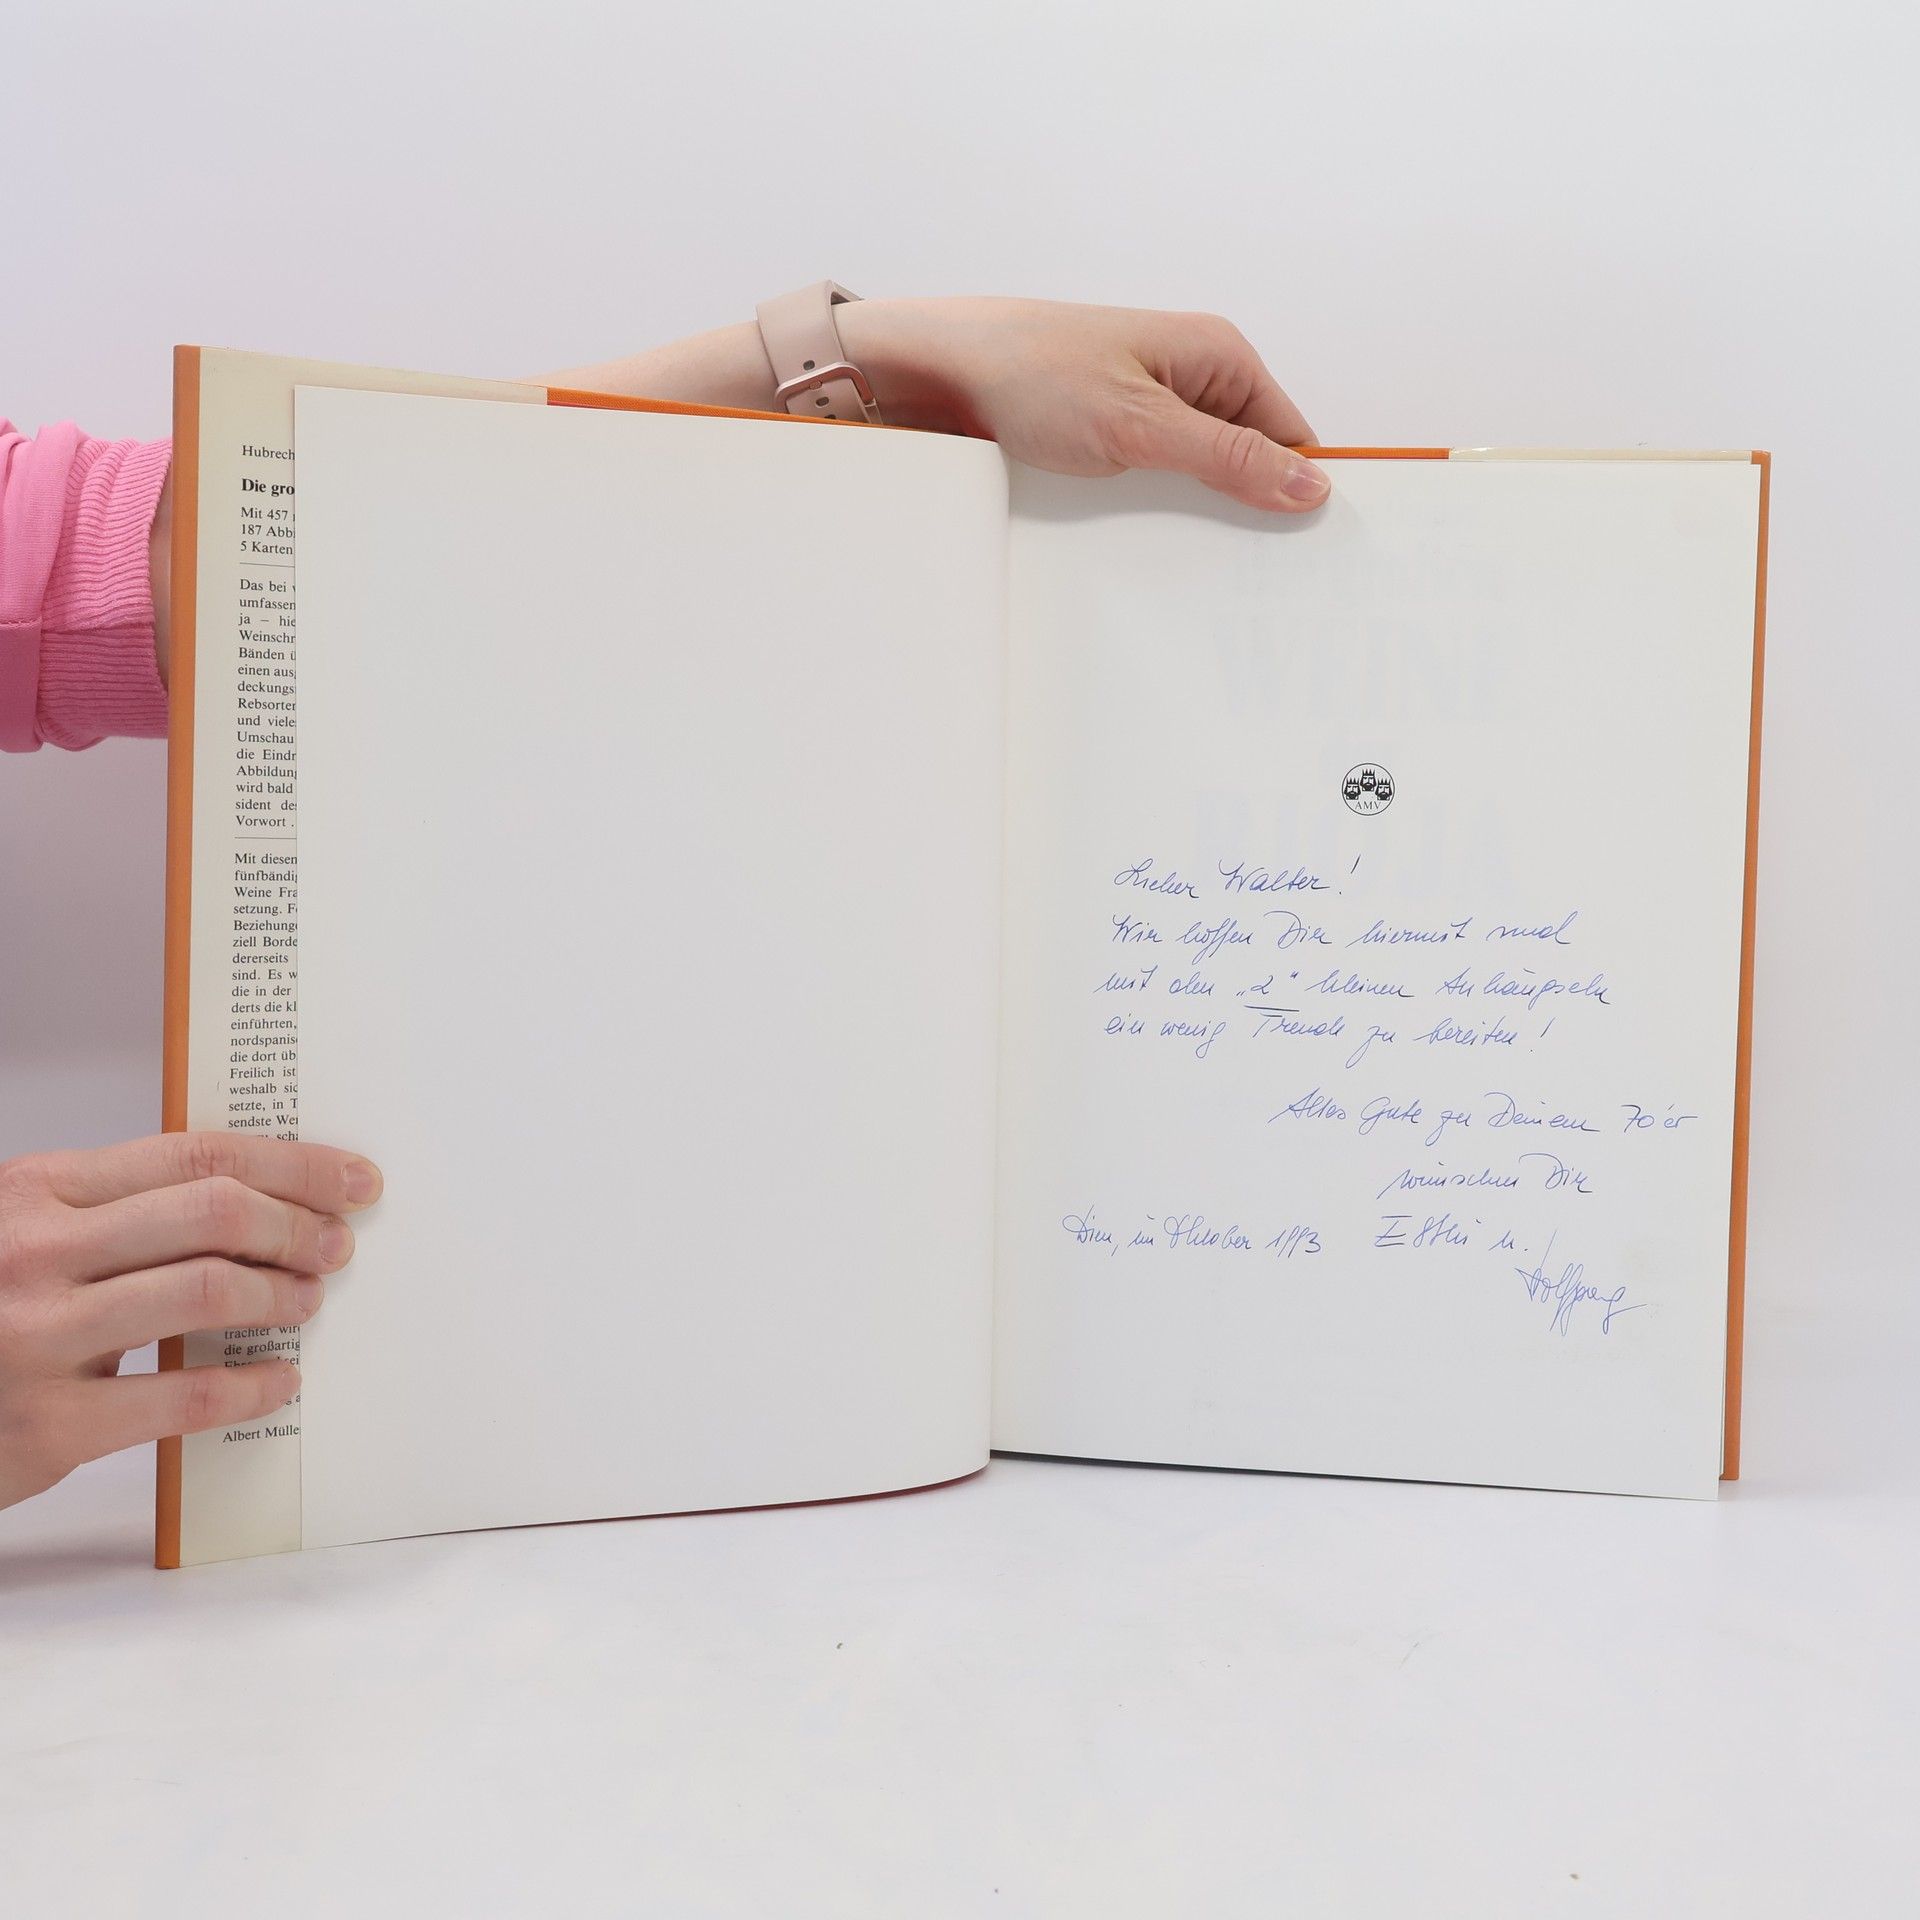 Hubrech
Die gro
Mit 457
187 Abbi
5 Karten
Das bei
umfassen
ja – hie
Weinschr
Bänden ü
einen aus
deckungs
Rebsorten
und viele
Umschau
die Eindr
Abbildung
wird bald
sident des
Vorwort .
Mit diesen
fünfbändig
Weine Fra
setzung. F
Beziehung
ziell Borde
dererseits
sind. Es w
die in der
derts die kl
einführten,
nordspanis
die dort üb
Freilich ist
weshalb sic
setzte, in T
sendste Wei
scha
trachter wird
die großartig
Albert Mülle
AMV
Lieber Walter!
Wir hoffen Dir hiermit und
mit den „2“ kleinen Anhängseln
ein wenig Freude zu bereiten!
Alles Gute zu Deinem 70'er
wünschen Dir
Wien, im Oktober 1993
u.
Wolfgang